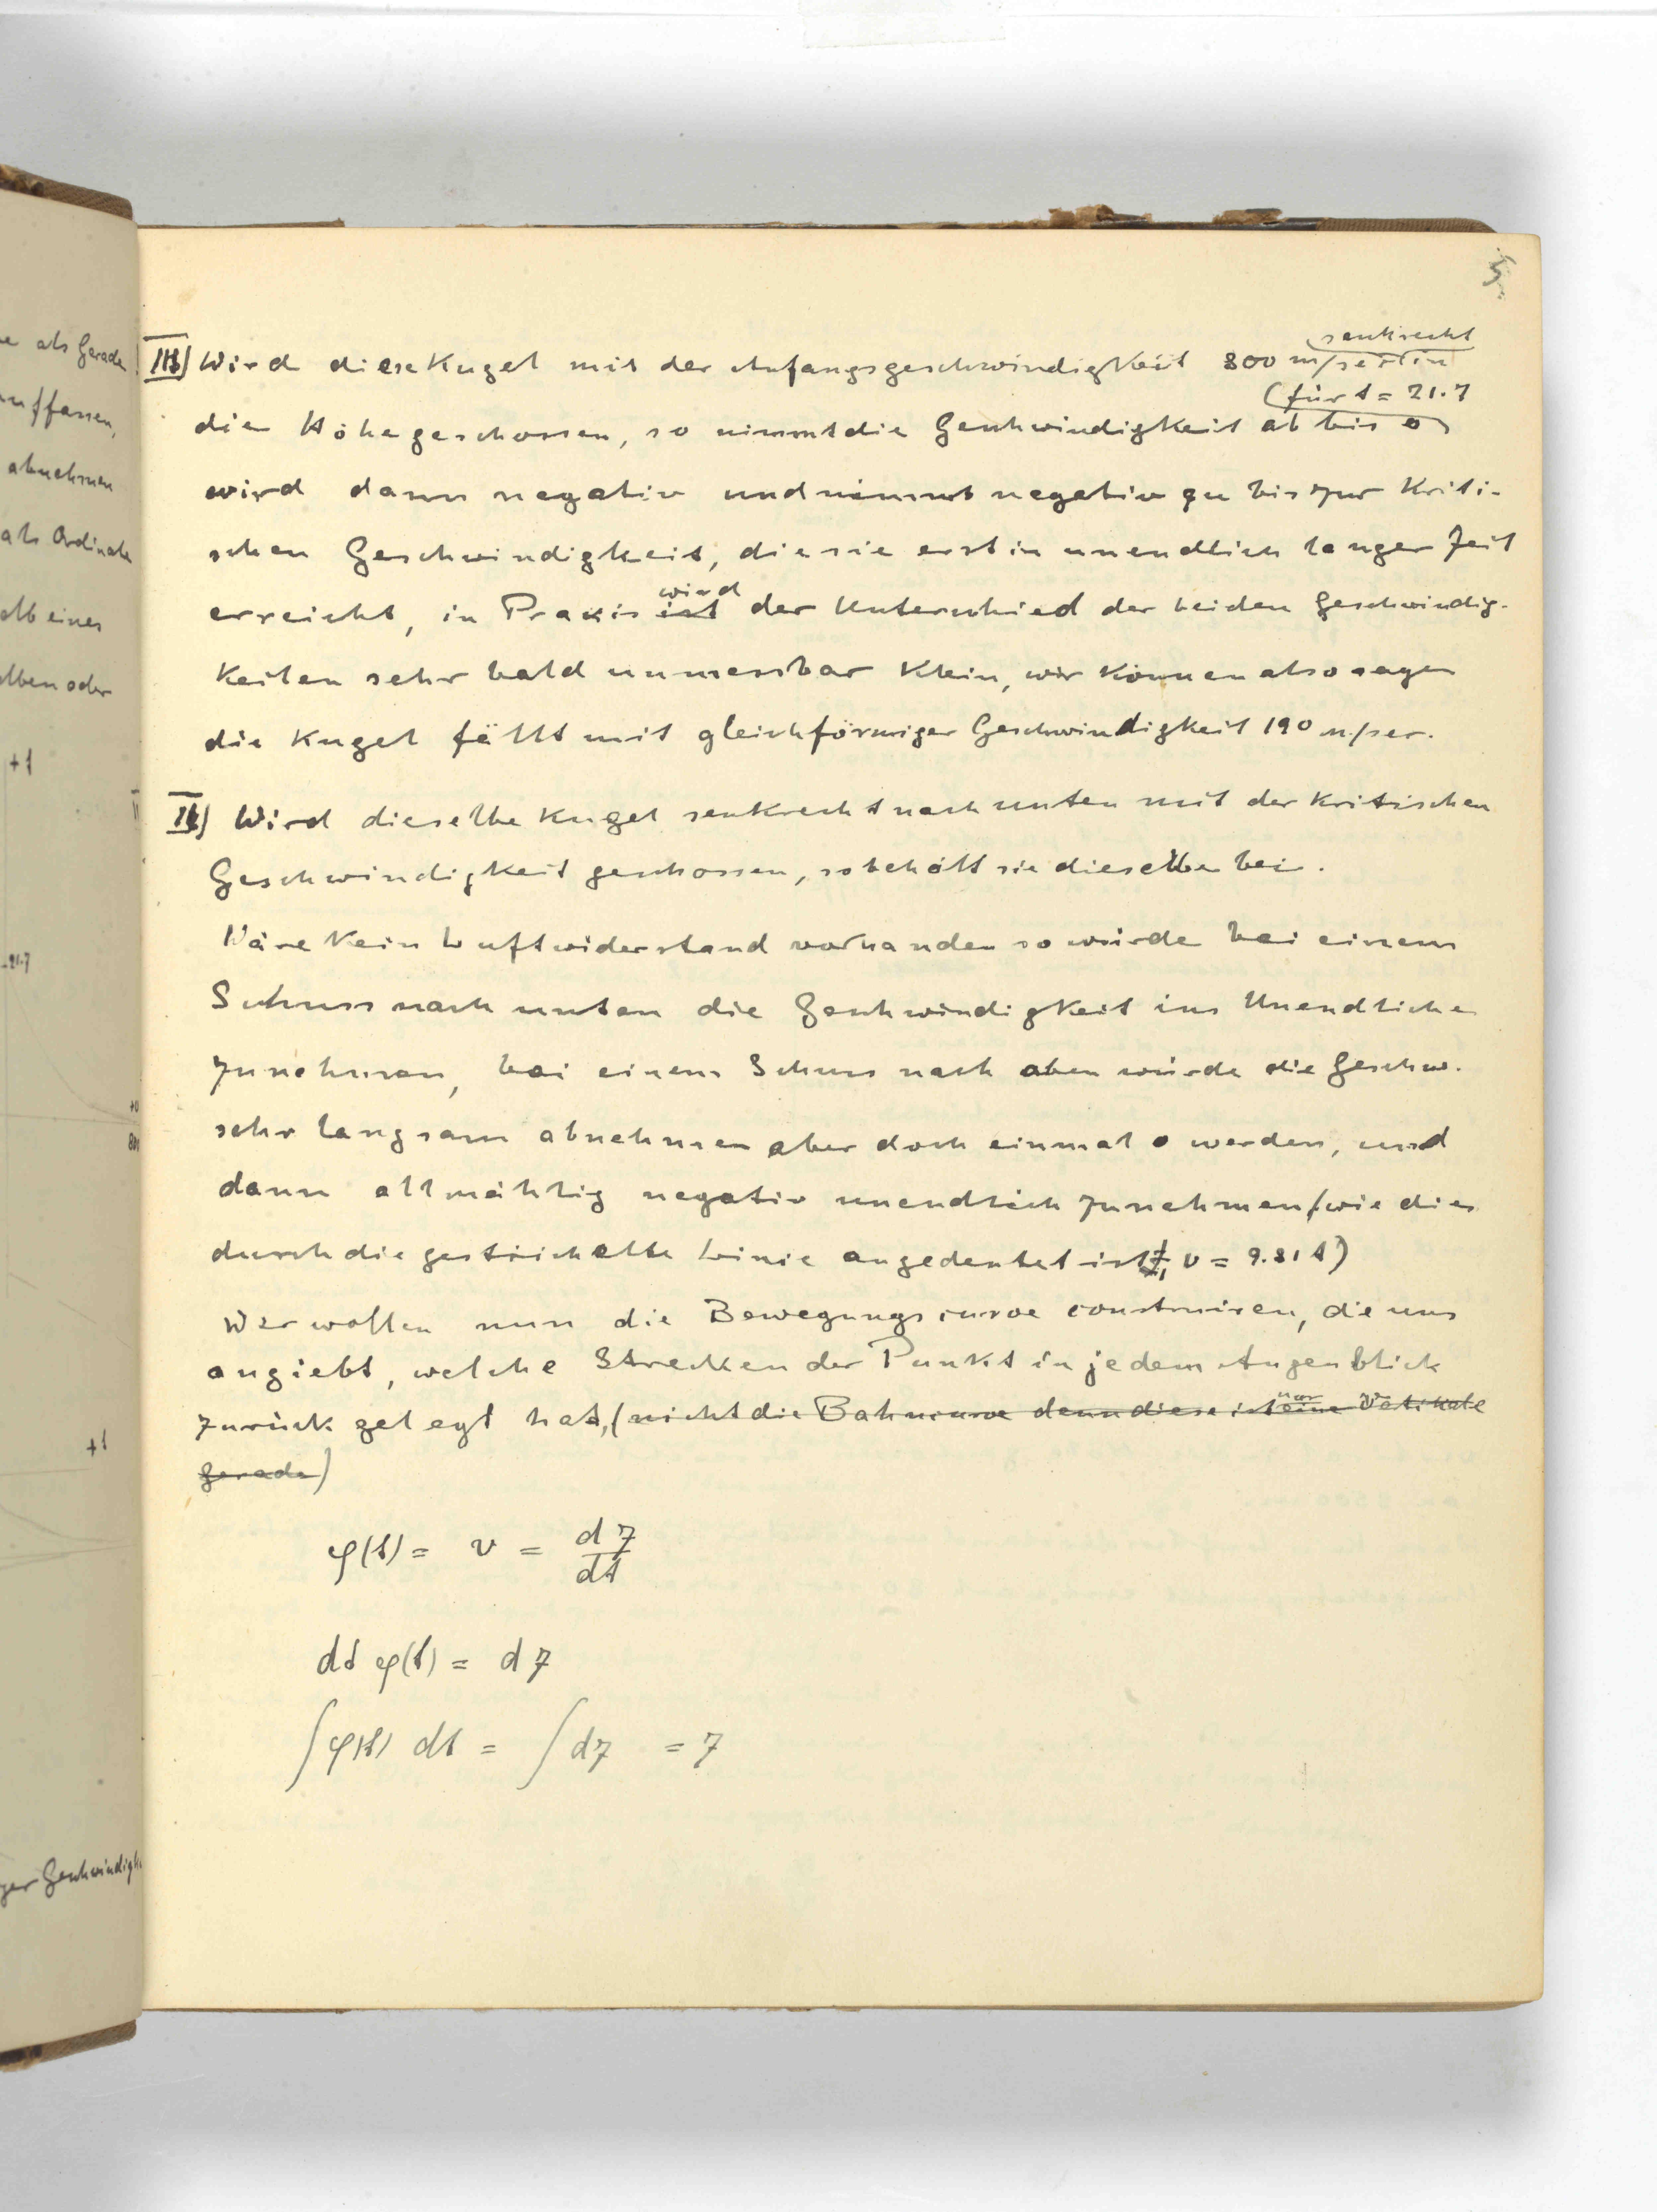 e als Gerade
auffassen,
abnehmen
als Ordinate
alb eines
elben oder
+1
-21.7
+1
ger Geschwindigk
5.
senkrecht
III) Wird diese Kugel mit der Anfangsgeschwindigkeit 800 m/sec in
(für t = 21.7
die Höhe geschossen, so nimmt die Geschwindigkeit ab bis 0)
wird dann negativ und nimmt negativ zu bis zur Kriti-
schen Geschwindigkeit, die sie erst in unendlich langer Zeit
wird
erreicht, in Praxis ist der Unterschied der beiden Geschwindig-
keiten sehr bald unmessbar klein, wir können also sagen
die Kugel fällt mit gleichförmiger Geschwindigkeit 190 m/sec.
II) Wird dieselbe Kugel senkrecht nach unten mit der kritischen
Geschwindigkeit geschossen, so behält sie dieselbe bei.
Wäre kein Luftwiderstand vorhanden so würde bei einem
Schuss nach unten die Geschwindigkeit ins Unendliche
zunehmen, bei einem Schuss nach oben würde die Geschw.
sehr langsam abnehmen aber doch einmal 0 werden, und
dann allmählig negativ unendlich zunehmen (wie dies
durch die gestrichelte Linie angedeutet ist, v = 9.81 t)
Wir wollen nun die Bewegungscurve construiren, die uns
angiebt, welche Strecken der Punkt in jedem Augenblick
nur
zurück gelegt hat, (nicht die Bahncurve denn diese ist eine Vertikale
Gerade)
φ(t) = v = dz/dt
dt φ(t) = dz
∫φ(t) dt = ∫dz = z